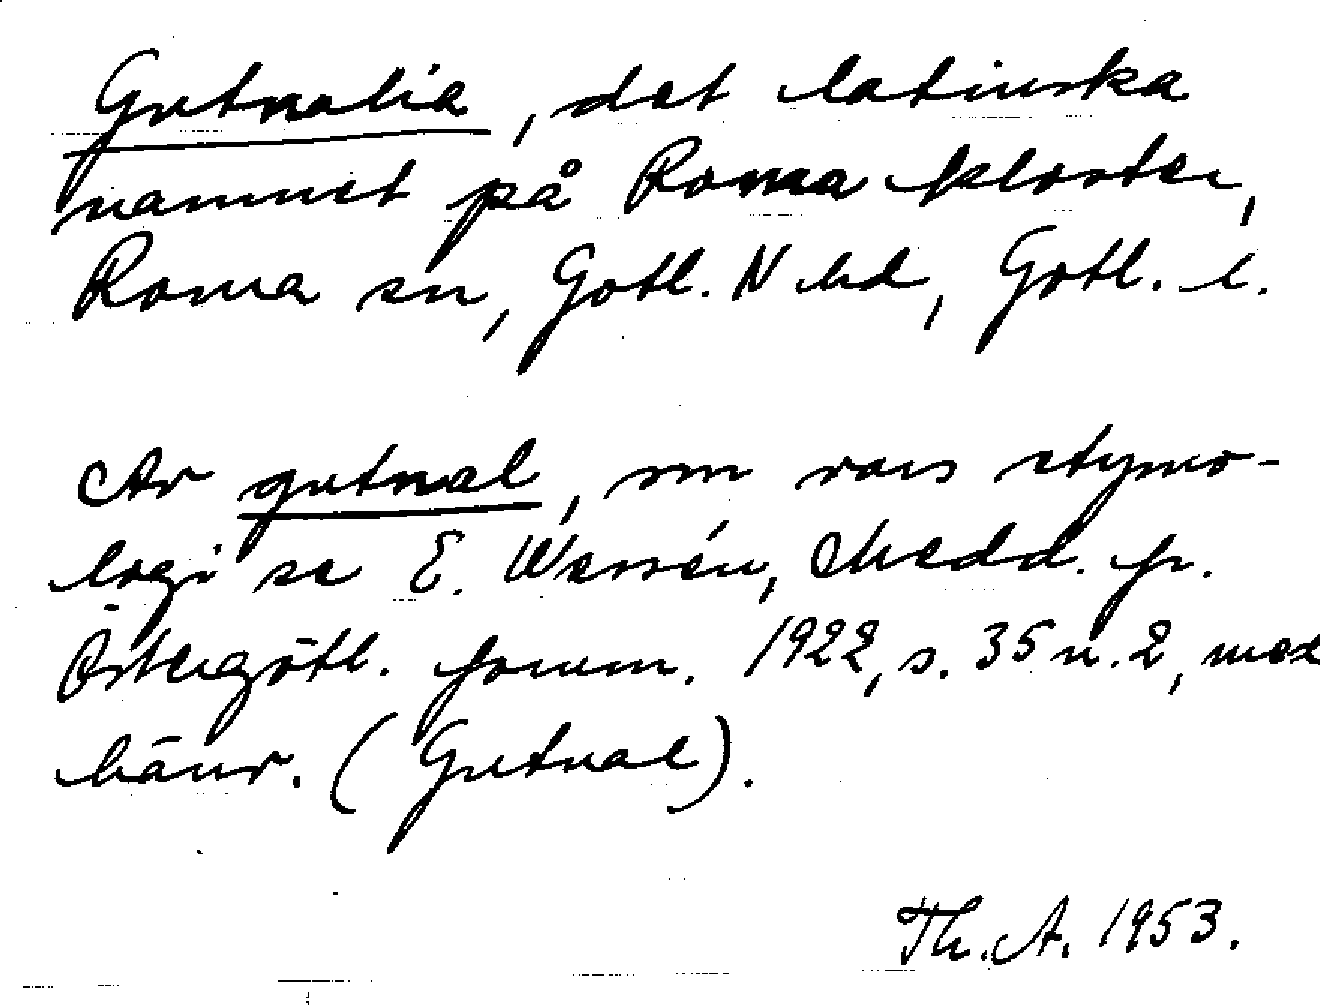 Gutnalia, det latinska
namnet på Roma kloster,
Roma sn, Gotl. N hd, Gotl. l.
Av gutnal, om vars etymo-
logi se E. Wessén, Medd. fr.
Östergötl. fornm. 1922, s. 35 n. 2, med
hänv. (Gutnal).
Th. A. 1953.